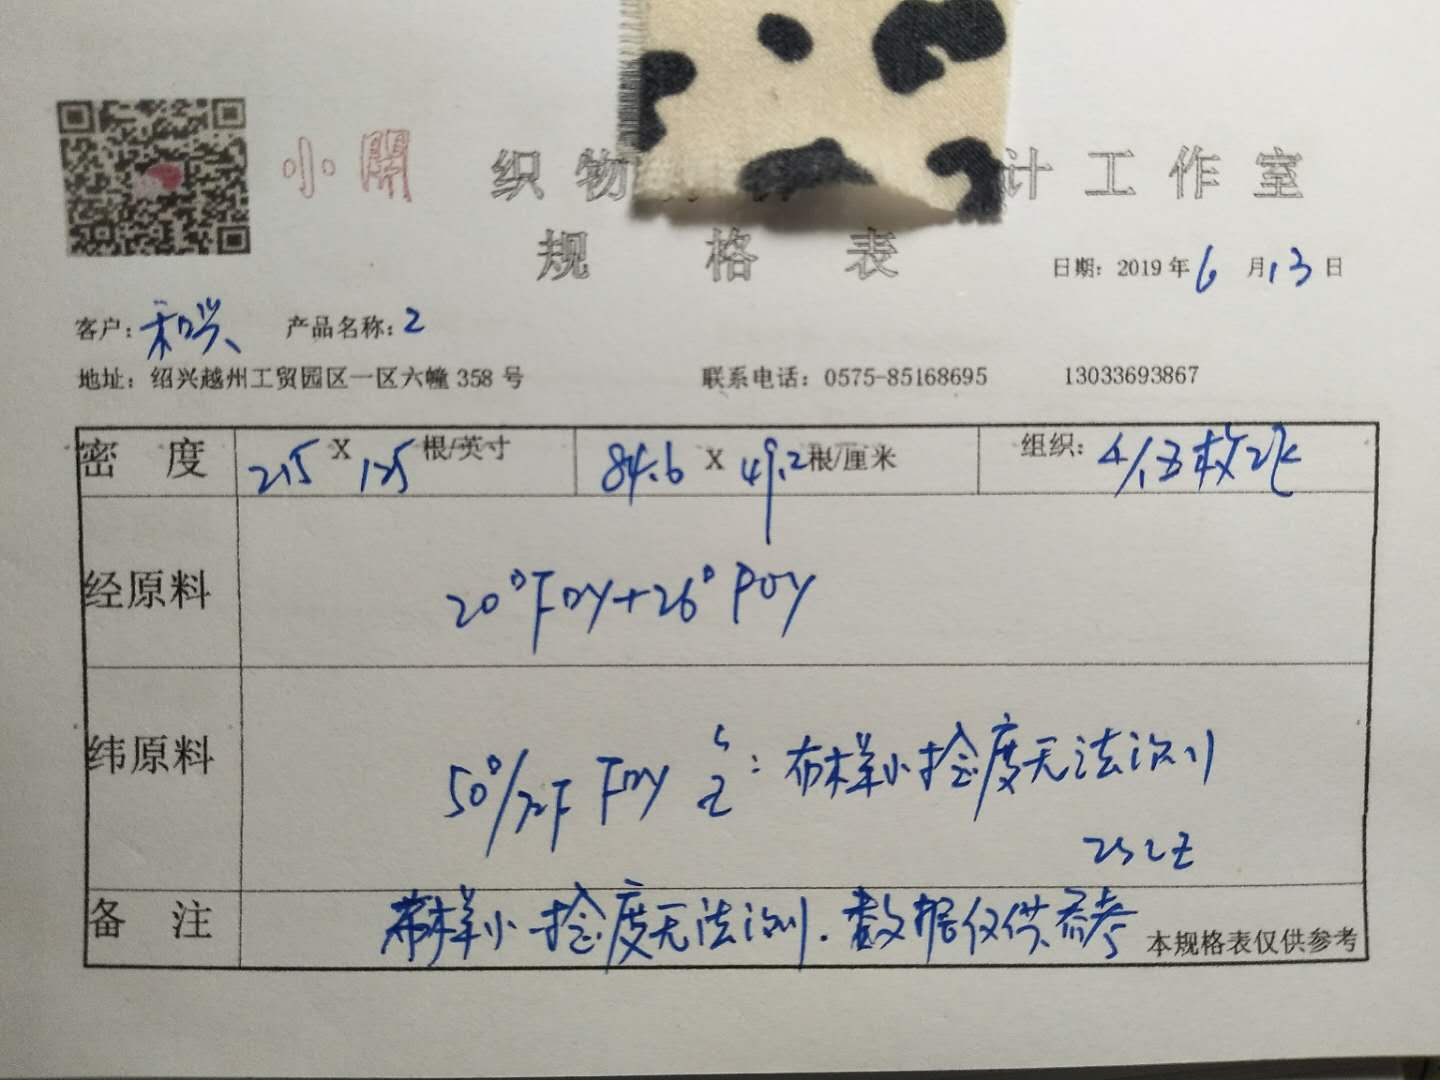 小開 织物 计工作室
规格表
日期：2019年6月13日
客户：和兴 产品名称：2
地址：绍兴越州工贸园区一区六幢358号 联系电话：0575-85168695 13033693867
密度 215 X 125 根/英寸 84.6 X 49.2 根/厘米 组织：4/1五枚2飞
经原料 20D FDY+26D POY
纬原料 50D/72F FDY S Z：布样小捻度无法测
2S2Z
备注 布样小捻度无法测.数据仅供参考 本规格表仅供参考